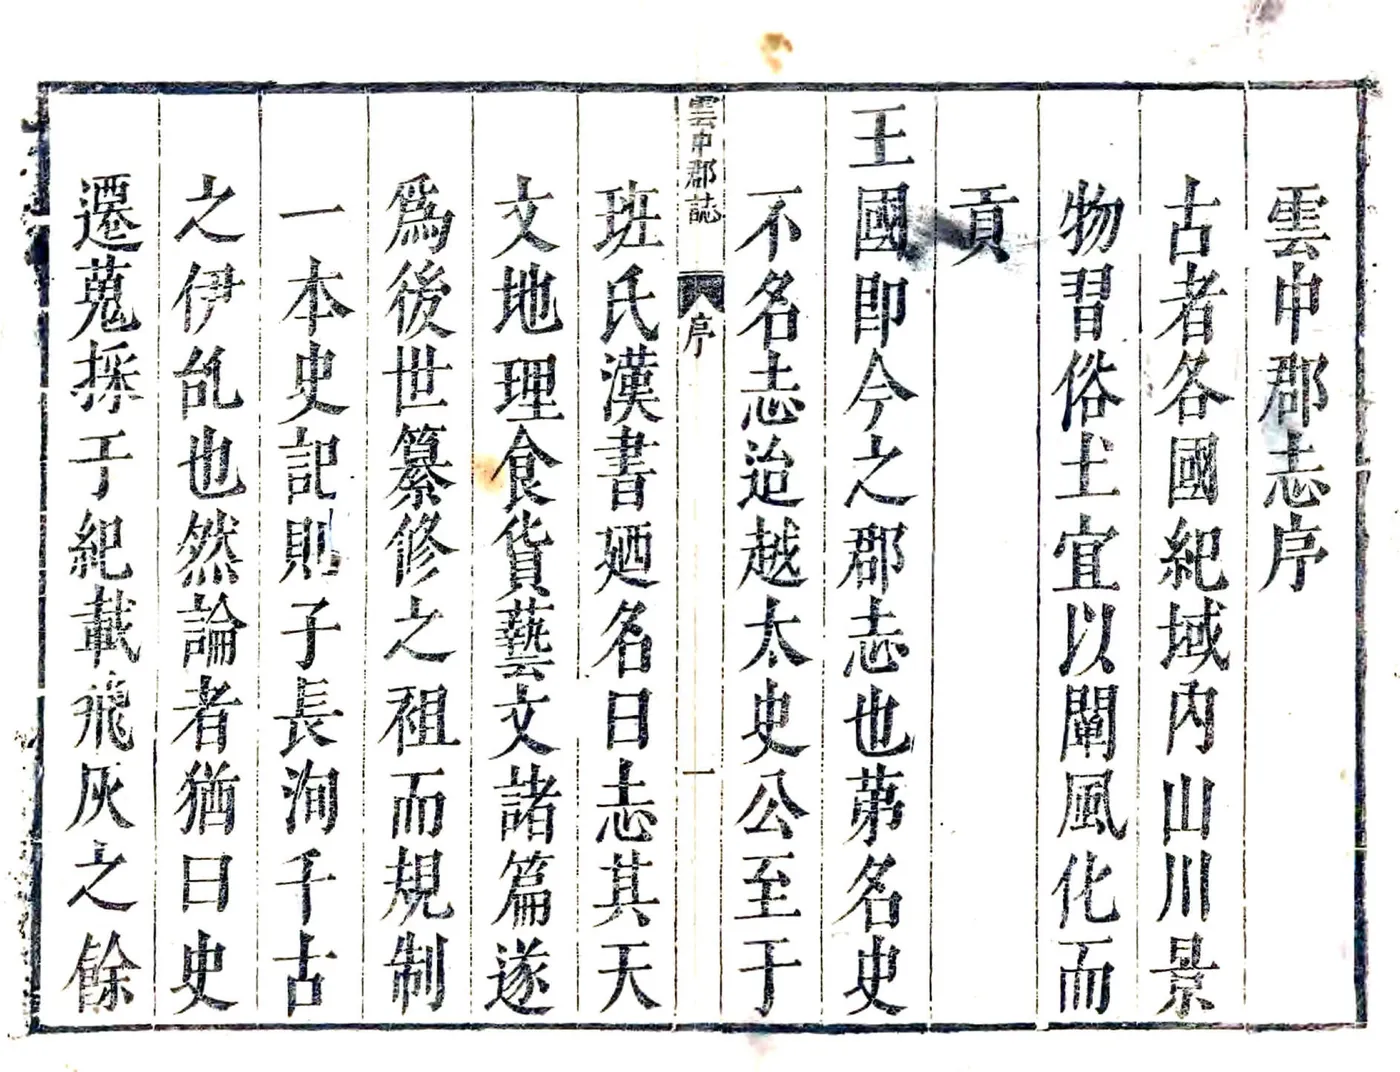 雲中郡志序
古者各國紀域內山川景
物習俗土宜以闡風化而
貢
王國即今之郡志也第名史
不名志迨越太史公至于
雲中郡誌
序
一
班氏漢書廼名曰志其天
文地理食貨藝文諸篇遂
爲後世纂修之祖而規制
一本史記則子長洵千古
之伊𠮯也然論者猶曰史
遷蒐採于紀載飛灰之餘